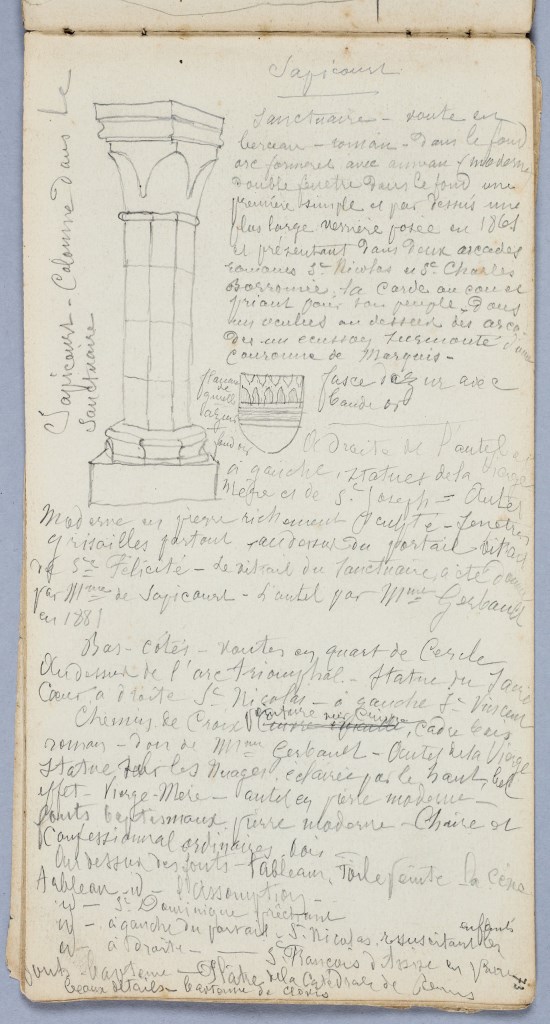 Sapicourt
Sapicourt - Colonne dans le
Sanctuaire
Sanctuaire - voute en
berceau - roman - Dans le fond
arc formeret avec anneau / moderne
double fenêtre dans le fond une
première simple et par dessus une
plus large verrière posée en 1861
et présentant dans deux arcades
romanes St Nicolas et St Charles
Borromée, la corde au cou et
priant pour son peuple. Dans
un oculus au dessus des arca
des un ecusson surmonté d'une
couronne de Marquis -
fasce d'azur avec
bande or
azur
A droite de l'autel et
à gauche, statues de la Vierge
Mère et de St Joseph = Autel
Moderne en pierre richement sculpté - fenêtres
grisailles partout, au dessus du portail vitrail
de Ste Félicité - Le vitrail du Sanctuaire a été donné
par Mme de Sapicourt - L'autel par Mme Gerbault
en 1881
Bas-côtés - voutes en quart de Cercle
Au dessus de l'arc triomphal - Statue du Sacré
Coeur, à droite St Nicolas - à gauche St Vincent
Chemin de Croix peinture sur cuivre, cadre bois
roman - don de Mme Gerbault - Autel de la Vierge
Statue sur les Nuages, éclairée par le haut, bel
effet - Vierge-Mère - autel en pierre moderne -
fonts baptismaux, pierre moderne - Chaire et
Confessionnal ordinaires, bois
Au dessus des fonts - Tableau, Toile peinte la Cène
Tableau id - l'Assomption -
id - St Dominique prêchant
id - à gauche du portail - St Nicolas ressuscitant les enfants
id - à droite - St François d'Assise en
de la Cathédrale de Reims
beaux détails